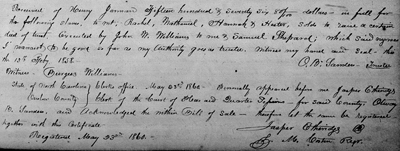 Received of Henry Jarman Fifteen hundred & Seventy Six 50/100 dollars in full for
the following slaves, to wit; Rachel, Nathaniel, Hannah & Hester, Sold to raise a certain
deed of trust Executed by John W. Williams to me & Samuel Sheppard, which said negroes
I warrant to be good as far as my authority goes as trustee. Witness my hand and Seal this
the 13th Feby 1858.
Witness Burgess Williams
State of North Carolina Clerks office May 23d 1860. Personally appeared before me Jasper Etheridge
County Clerk of the Court of Pleas and Quarter Sessions for said County,
and acknowledged the within Bill of Sale - therefore let the same be registered
together with this Certificate
Jasper Etheridge
Registered May 23d 1860.